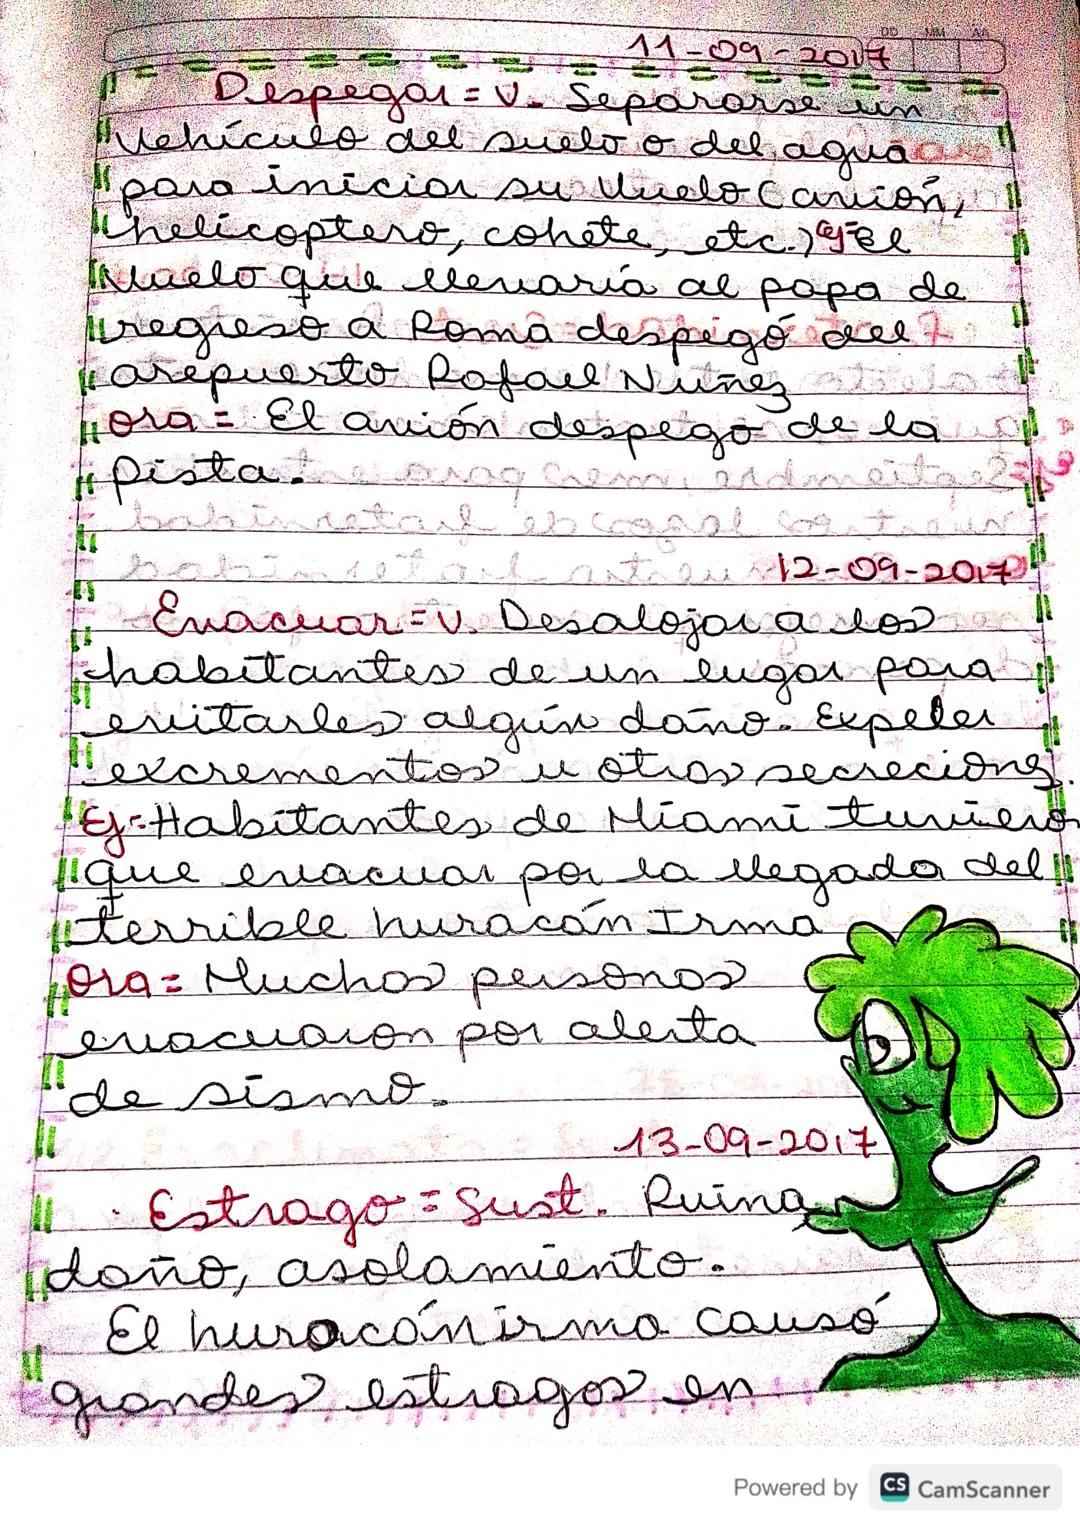 DD MM AA
11-09-2017
Despegar = v. Separarse un
vehículo del suelo o del agua
para iniciar su vuelo (avión,
helicoptero, cohete, etc.) ej= El
vuelo que llevaría al papa de
regreso a Roma despegó del
arepuerto Rafael Nuñez
Ora = El avión despegó de la
pista.
12-09-2017
Evacuar = v. Desalojar a los
habitantes de un lugar para
evitarles algún daño. Expeler
excrementos u otras secreciones.
Ej= Habitantes de Miami tuviero
que evacuar por la llegada del
terrible huracán Irma
Ora = Muchas personas
evacuaron por alerta
de sismo.
13-09-2017
Estrago = Sust. Ruina,
daño, asolamiento.
El huracán irma causó
grandes estragos en
Powered by CS CamScanner